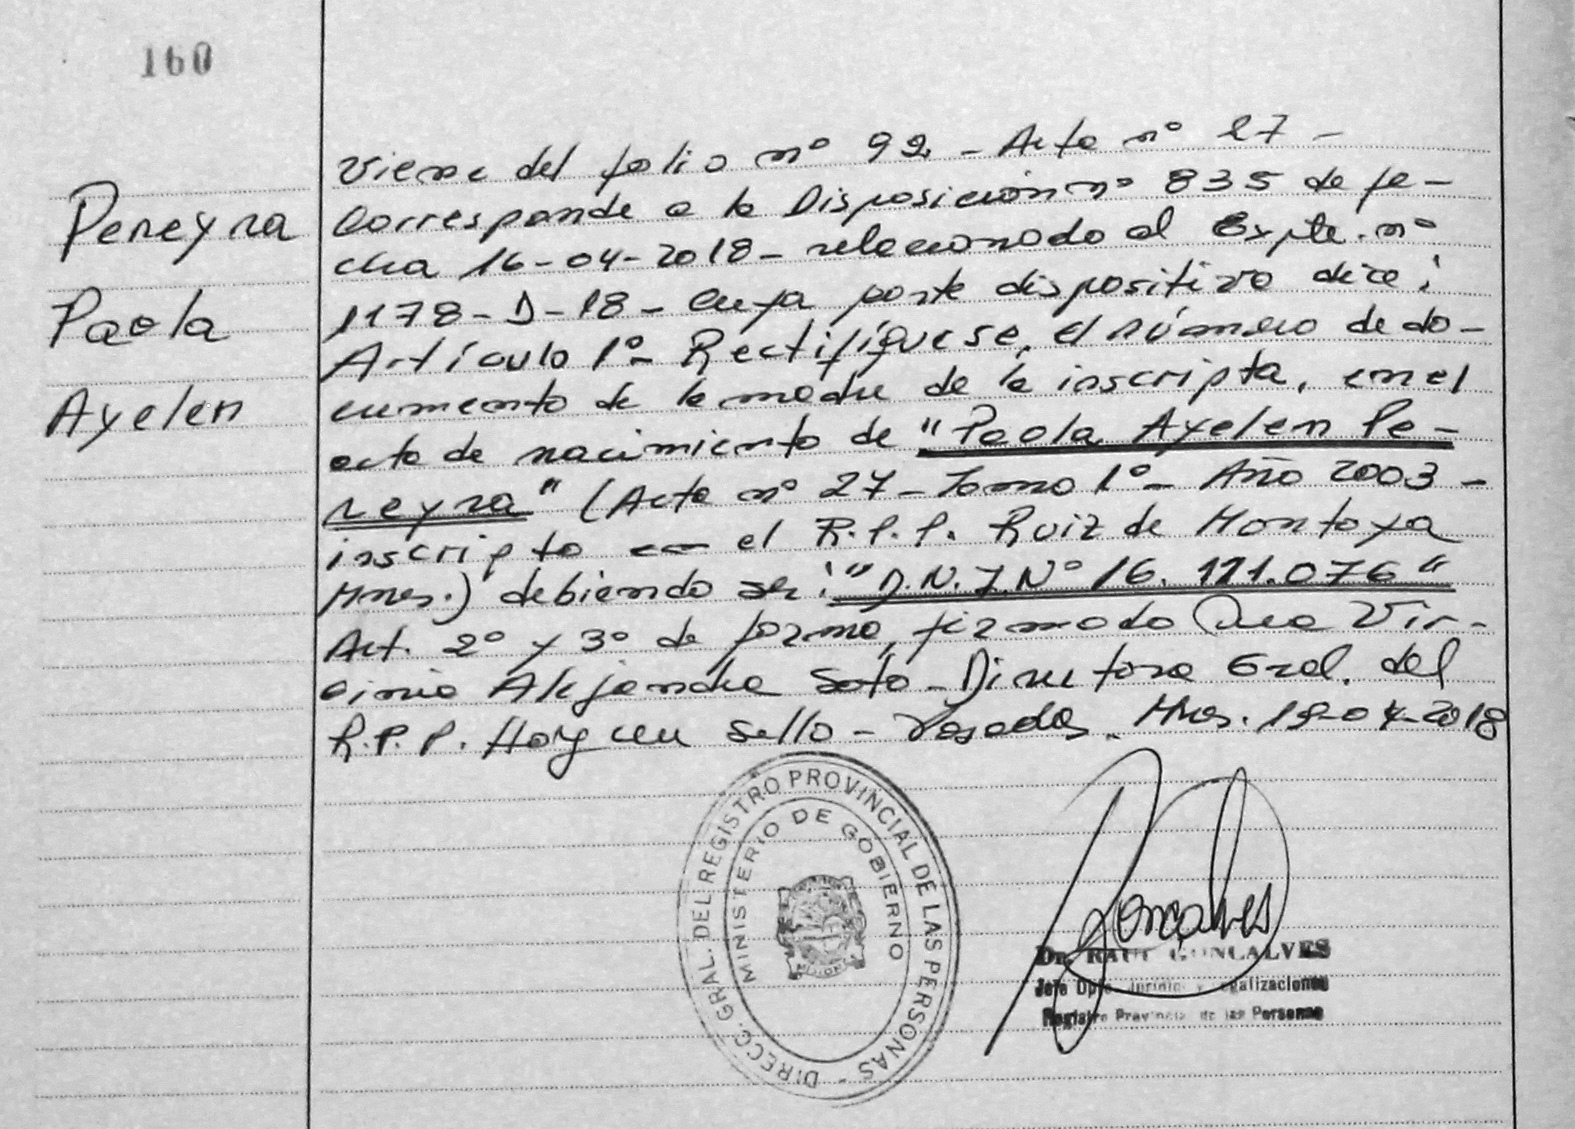 160
Pereyra
Paola
Ayelen
Viene del folio nº 92 - Acta nº 27 -
Corresponde a la Disposición nº 835 de fe-
cha 16-04-2018 - relacionado al Expte. nº
1178-D-18 - cuya parte dispositiva dice:
Artículo 1º- Rectifíquese, el número de do-
cumento de la madre de la inscripta, en el
acta de nacimiento de "Paola Ayelen Pe-
reyra" (Acta nº 27 - Tomo 1º - Año 2003 -
inscripto en el R.P.P. Ruiz de Montoya
Mnes.) debiendo ser: "D.N.I. Nº 16.121.076"
Art. 2º y 3º de forma, firmado Dra Vir-
ginia Alejandra Soto - Directora Gral. del
R.P.P. Hay un sello - Posadas. Mnes. 19-04-2018
DIRECC. GRAL. DEL REGISTRO PROVINCIAL DE LAS PERSONAS -
MINISTERIO DE GOBIERNO
MISIONES
Goncalves
Dr. RAUL GONCALVES
Jefe Dpto. Jurídico y Legalizaciones
Registro Provincial de las Personas